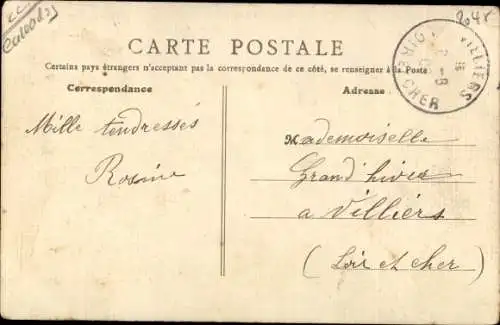 CARTE POSTALE
Certains pays étrangers n'acceptant pas la correspondance de ce côté, se renseigner à la Poste
Correspondance
Adresse
VILLIERS
CHER
Mille tendresses
Rosine
Mademoiselle
Grand'hiver
a Villiers
(Loir et cher)